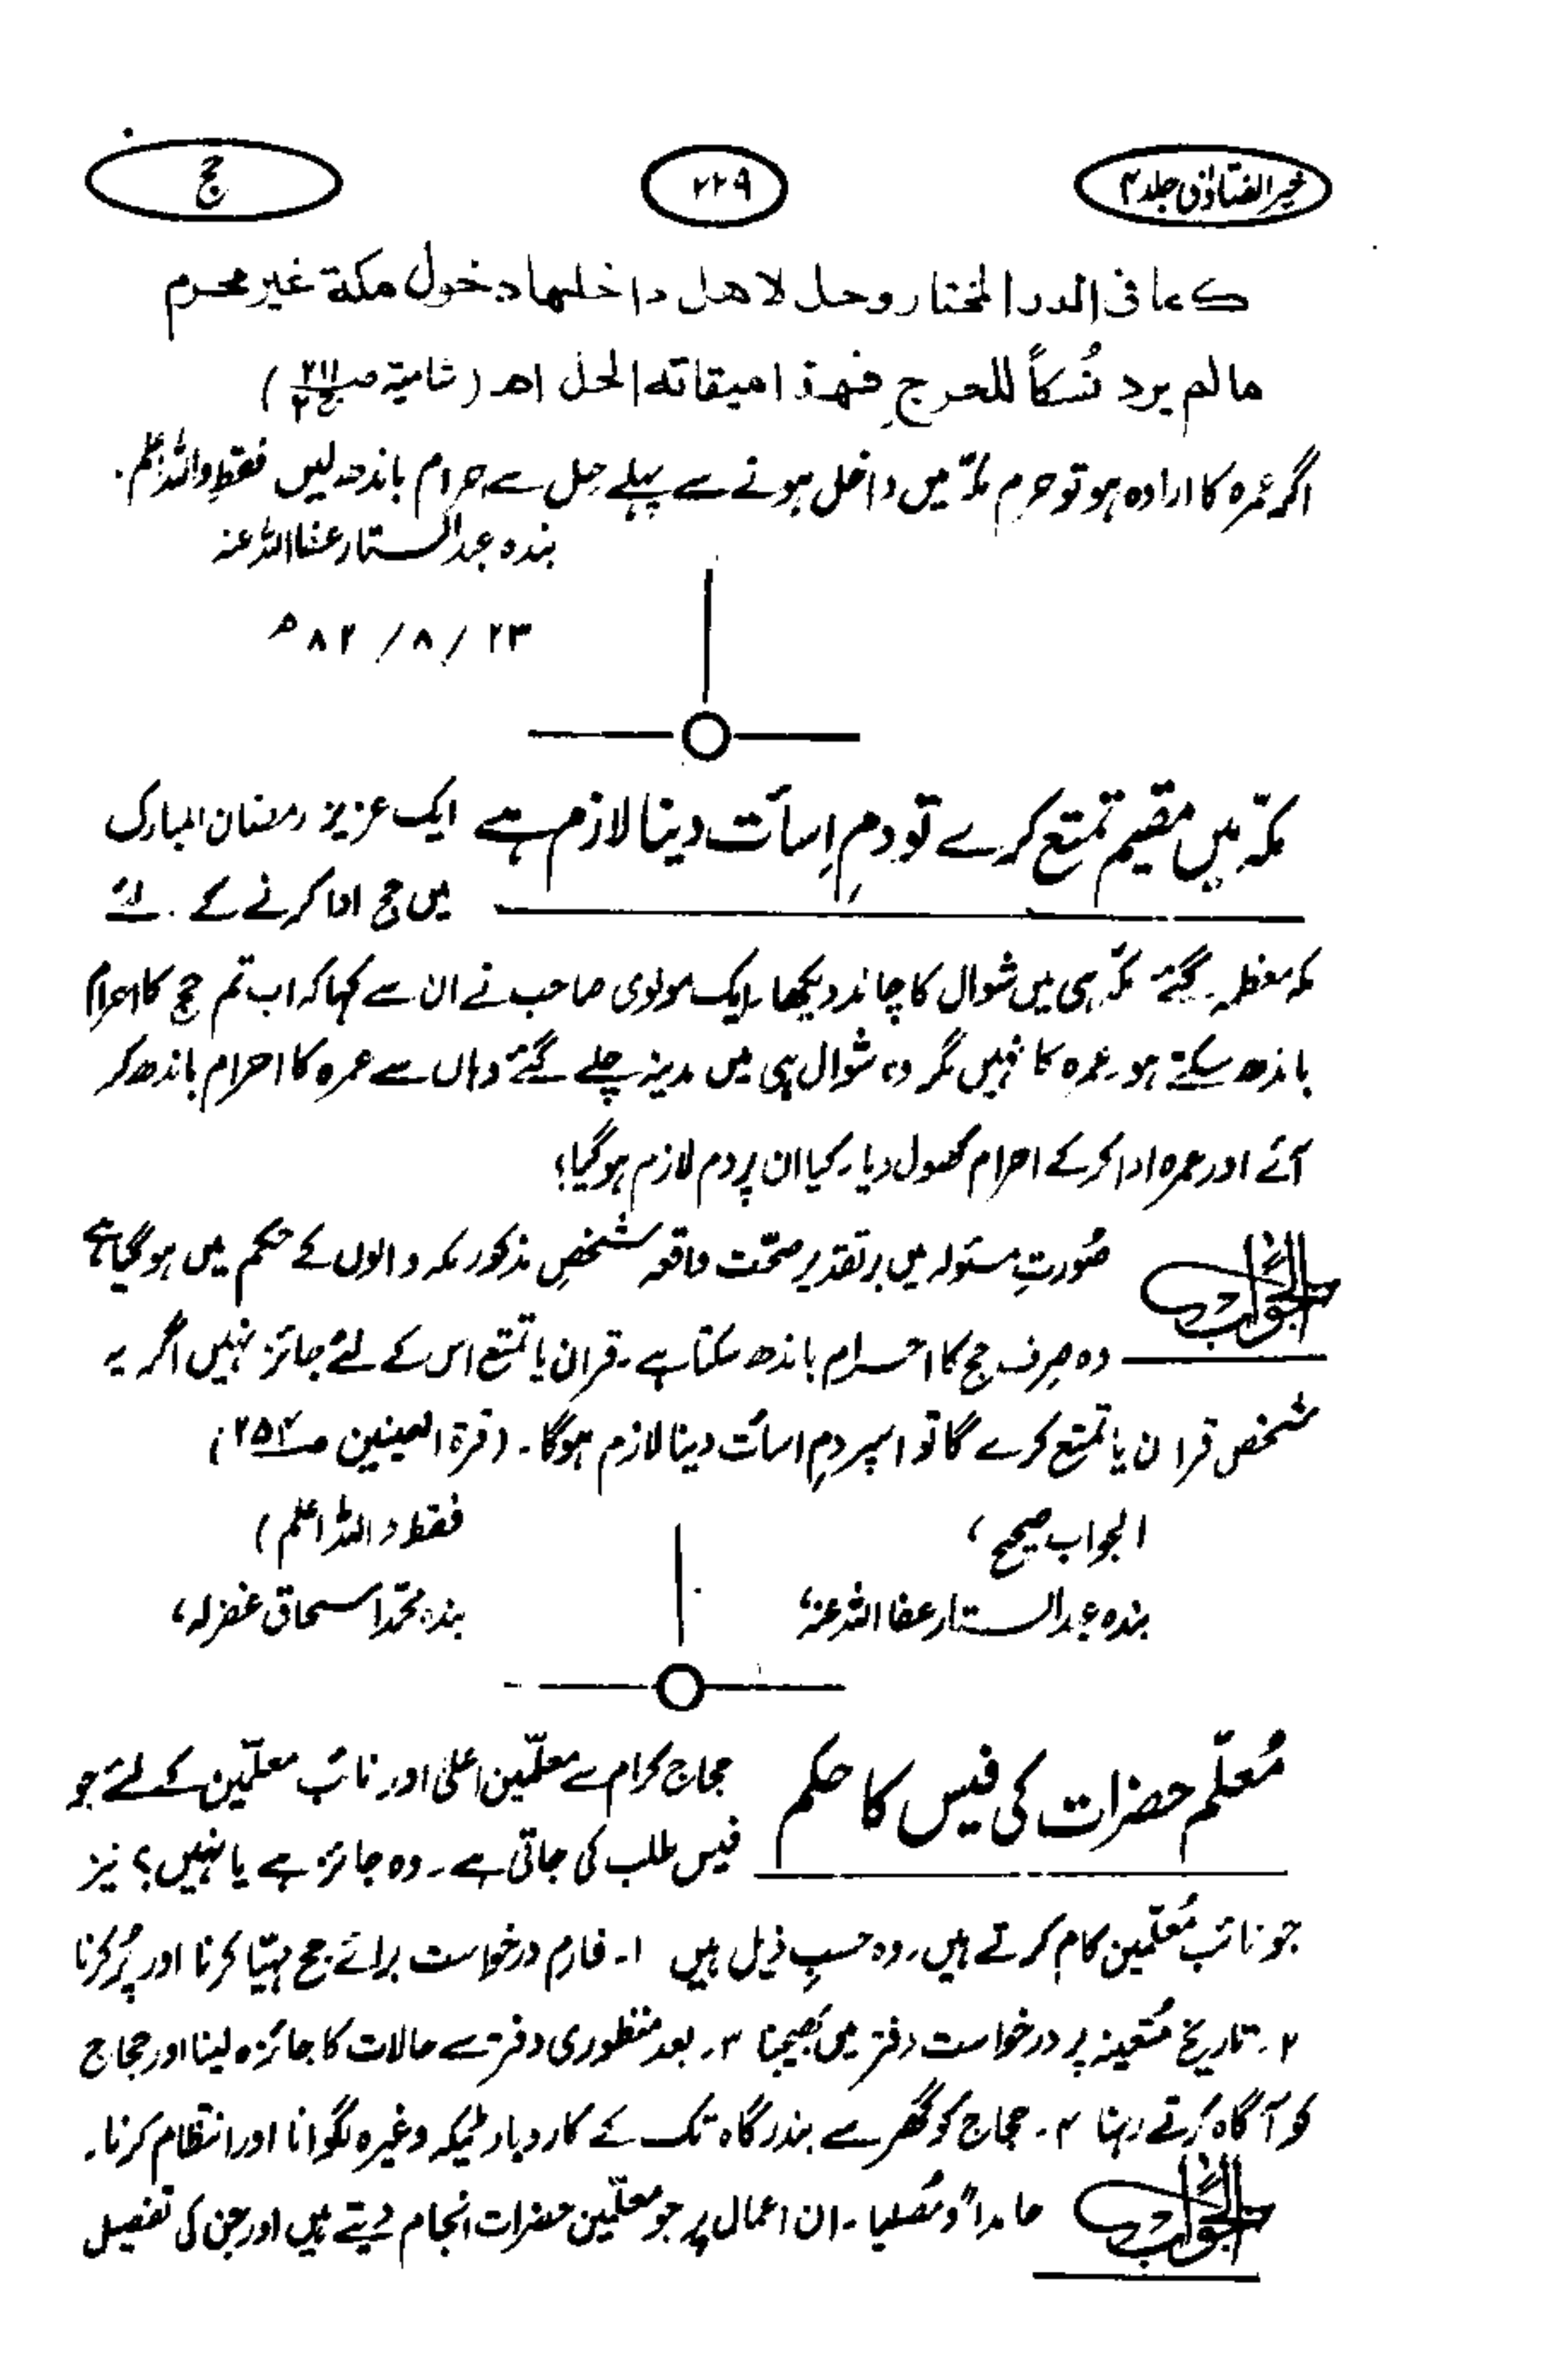 خیر الفتاوٰی جلد ۴
۲۲۹
حج
كما فى الدر المختار وحل لاهل داخلها دخول مكة غير محرم
ما لم يرد نُسكاً للحرج فهذا ميقاته الحل اھ (شامية ص۲۱۱ ج۲)
اگر عمرہ کا ارادہ ہو تو حرم مکہ میں داخل ہونے سے پہلے حِل سے احرام باندھ لیں فقط واللہ اعلم.
بندہ عبدالستار عفا اللہ عنہ
۲۳ / ۸ / ۸۲ ھ
مکہ میں مقیم تمتع کرے تو دمِ اِسأت دینا لازم ہے ایک عزیز رمضان المبارک
میں حج ادا کرنے کے لئے
مکہ معظمہ گئے مکہ ہی میں شوال کا چاند دیکھا۔ ایک مولوی صاحب نے ان سے کہا کہ اب تم حج کا احرام
باندھ سکتے ہو۔ عمرہ کا نہیں مگر وہ شوال ہی میں مدینہ چلے گئے وہاں سے عمرہ کا احرام باندھ کر
آئے اور عمرہ ادا کر کے احرام کھول دیا۔ کیا ان پر دم لازم ہو گیا؟
الجواب صُورتِ مسئولہ میں بر تقدیر صحّت واقعہ شخصِ مذکور مکہ والوں کے حکم میں ہو گیا ہے
وہ صرف حج کا احرام باندھ سکتا ہے۔ قران یا تمتع اس کے لئے جائز نہیں اگر یہ
شخص قران یا تمتع کرے گا تو اسپر دمِ اسأت دینا لازم ہو گا۔ (قرۃ العینین ص۲۵۲)
الجواب صحیح، فقط واللہ اعلم)
بندہ عبدالستار عفا اللہ عنہ، بندہ محمد اسحاق غفرلہ،
مُعلّم حضرات کی فیس کا حکم حجاج کرام سے معلّمین اعلیٰ اور نائب معلّمین کے لئے جو
فیس طلب کی جاتی ہے۔ وہ جائز ہے یا نہیں؟ نیز
جو نائب مُعلّمین کام کرتے ہیں، وہ حسبِ ذیل ہیں ۱۔ فارم درخواست برائے حج مہیّا کرنا اور پُر کرنا
۲۔ تاریخ مُتعینہ پر درخواست دفتر میں بھیجنا ۳۔ بعد منظوری دفتر سے حالات کا جائزہ لینا اور حجاج
کو آگاہ کرتے رہنا ۴۔ حجاج کو گھر سے بندرگاہ تک کے کاروبار ٹیکہ وغیرہ لگوانا اور انتظام کرنا۔
الجواب حامداً و مُصلیا۔ ان اعمال پر جو معلّمین حضرات انجام دیتے ہیں اور جن کی تفصیل